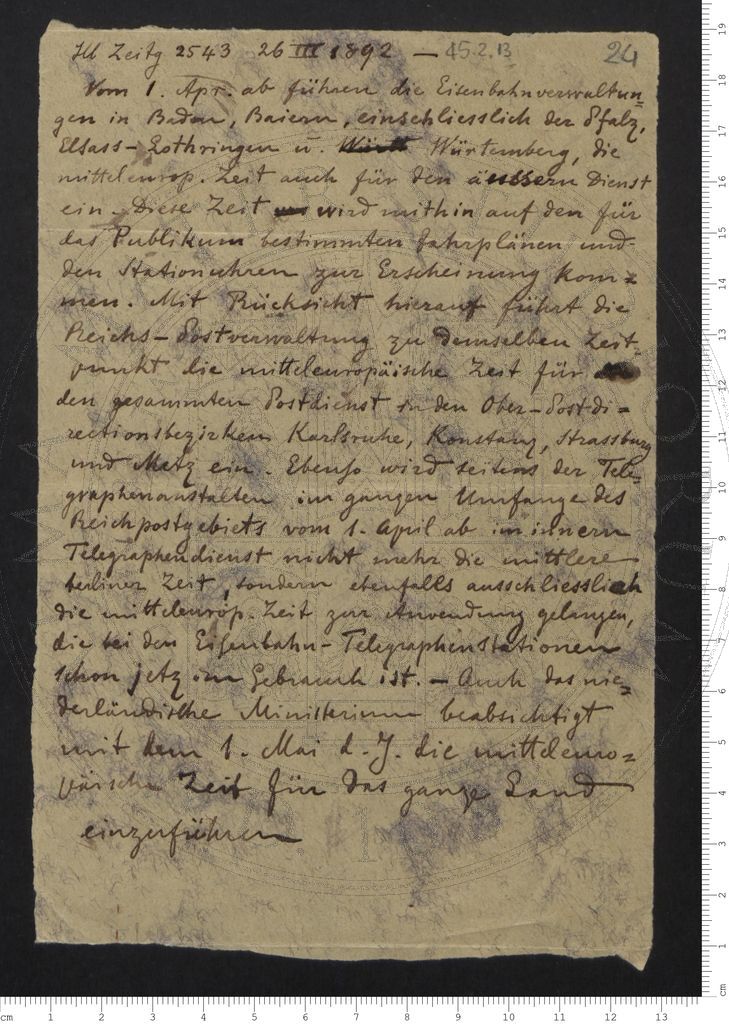 Ill Zeitg 2543 26 III 1892 — 45.2.13 24
Vom 1. Apr. ab führen die Eisenbahnverwaltun=
gen in Baden, Baiern, einschliesslich der Pfalz,
Elsass-Lothringen u. Würtemberg, die
mitteleurop. Zeit auch für den äussern Dienst
ein. Diese Zeit wird mithin auf den für
das Publikum bestimmten Fahrplänen und
den Stationuhren zur Erscheinung kom=
men. Mit Rücksicht hierauf führt die
Reichs-Postverwaltung zu demselben Zeit=
punkt die mitteleuropäische Zeit für
den gesammten Postdienst in den Ober-Postdi=
rectionsbezirken Karlsruhe, Konstanz, Strassburg
und Metz ein. Ebenso wird seitens der Tele=
graphenanstalten im ganzen Umfange des
Reichpostgebiets vom 1. April ab im innern
Telegraphendienst nicht mehr die mittlere
berliner Zeit, sondern ebenfalls ausschliesslich
die mitteleurop. Zeit zur Anwendung gelangen,
die bei den Eisenbahn-Telegraphenstationen
schon jetz im Gebrauch ist. — Auch das nie=
derländische Ministerium beabsichtigt
mit dem 1. Mai d. J. die mitteleuro=
päische Zeit für das ganze Land
einzuführen